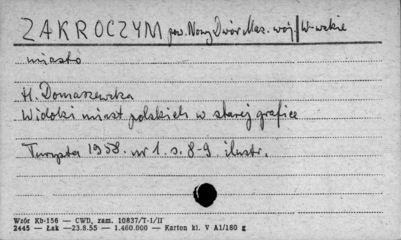 ZAKROCZYM pow. Nowy Dwór Maz. woj. W-wskie
miasto
H. Domaszewska
Widoki miast polskich w starej grafice
Turysta 1958. nr 1. s. 8-9. ilustr.
Wzór Kb-156 — CWD, zam. 10837/T-1/II
2445 — Łak —23.8.55 — 1.460.000 — Karton kl. V A1/180 g